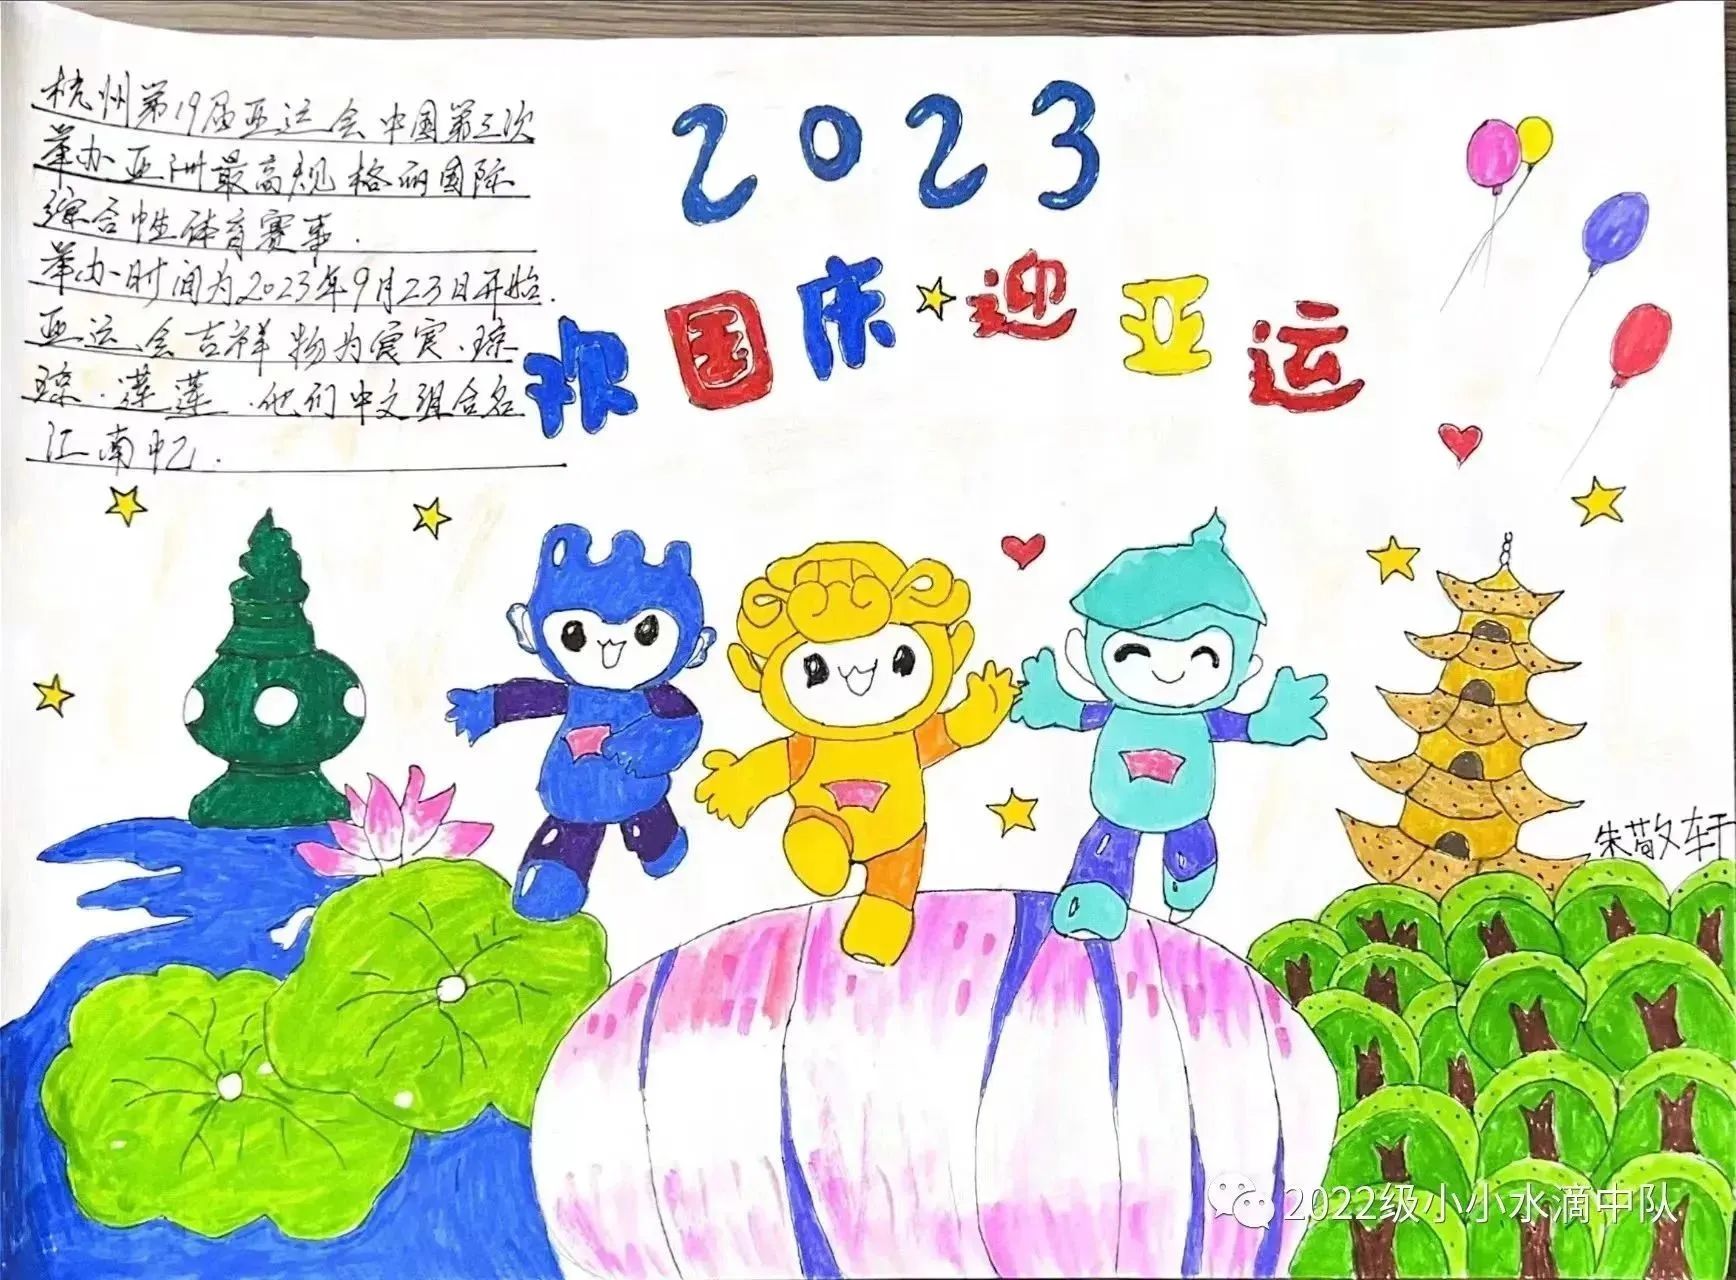 杭州第19届亚运会中国第三次
举办亚洲最高规格的国际
综合性体育赛事.
举办时间为2023年9月23日开始.
亚运会吉祥物为宸宸、琮
琮.莲莲.他们中文组合名
江南忆.
2023
欢国庆迎亚运
朱敬轩
2022级小小水滴中队